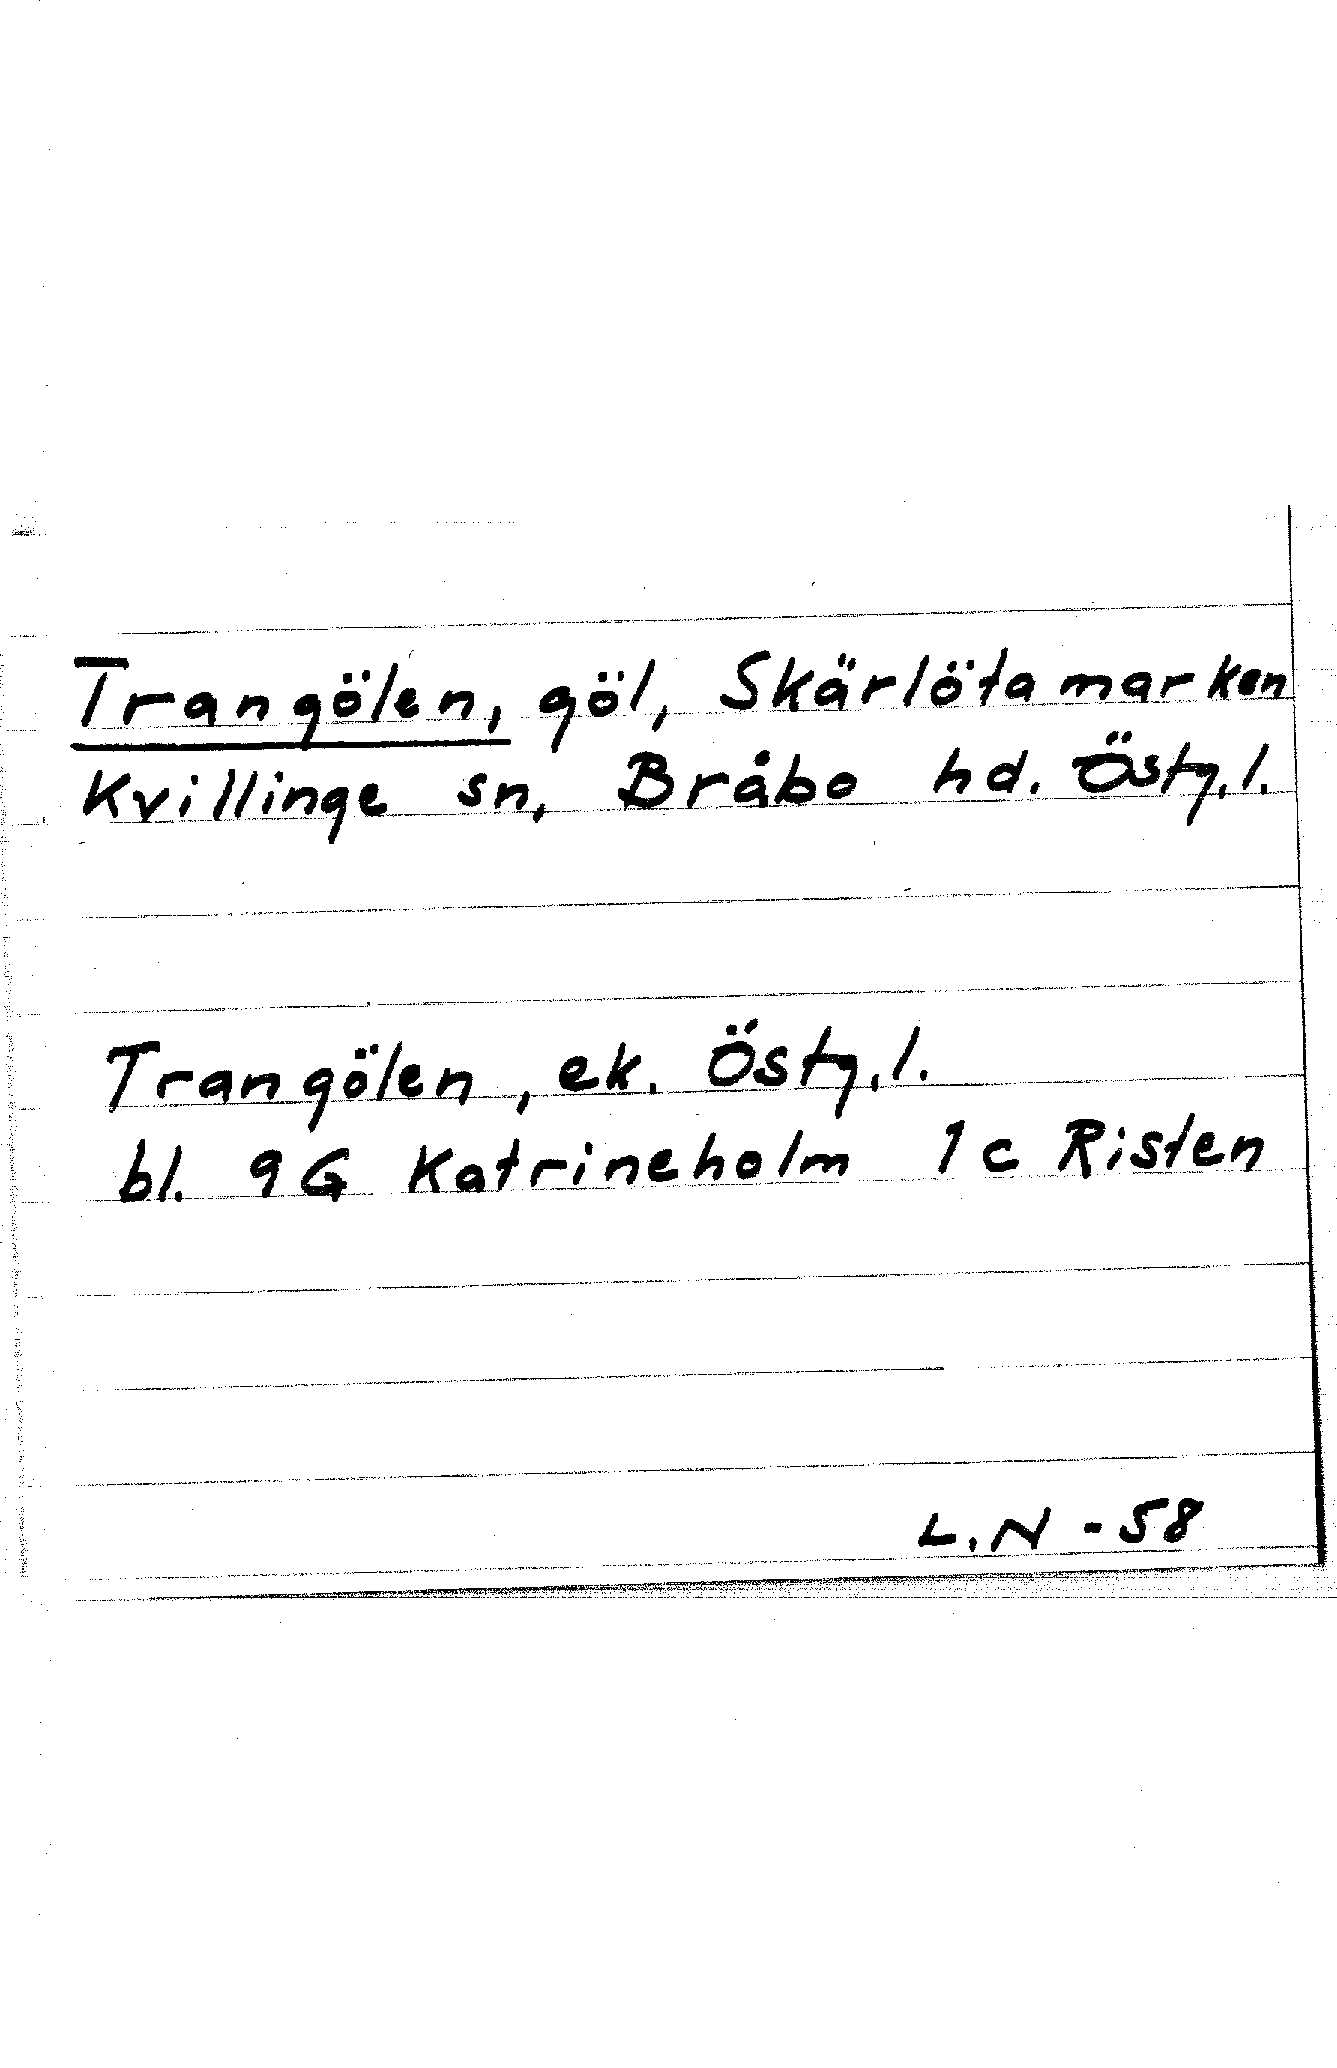 Trangölen, göl, Skärlötamarken
Kvillinge sn, Bråbo hd. Östg.l.
Trangölen, ek. Östg.l.
bl. 9G Katrineholm 1c Risten
L.N - 58